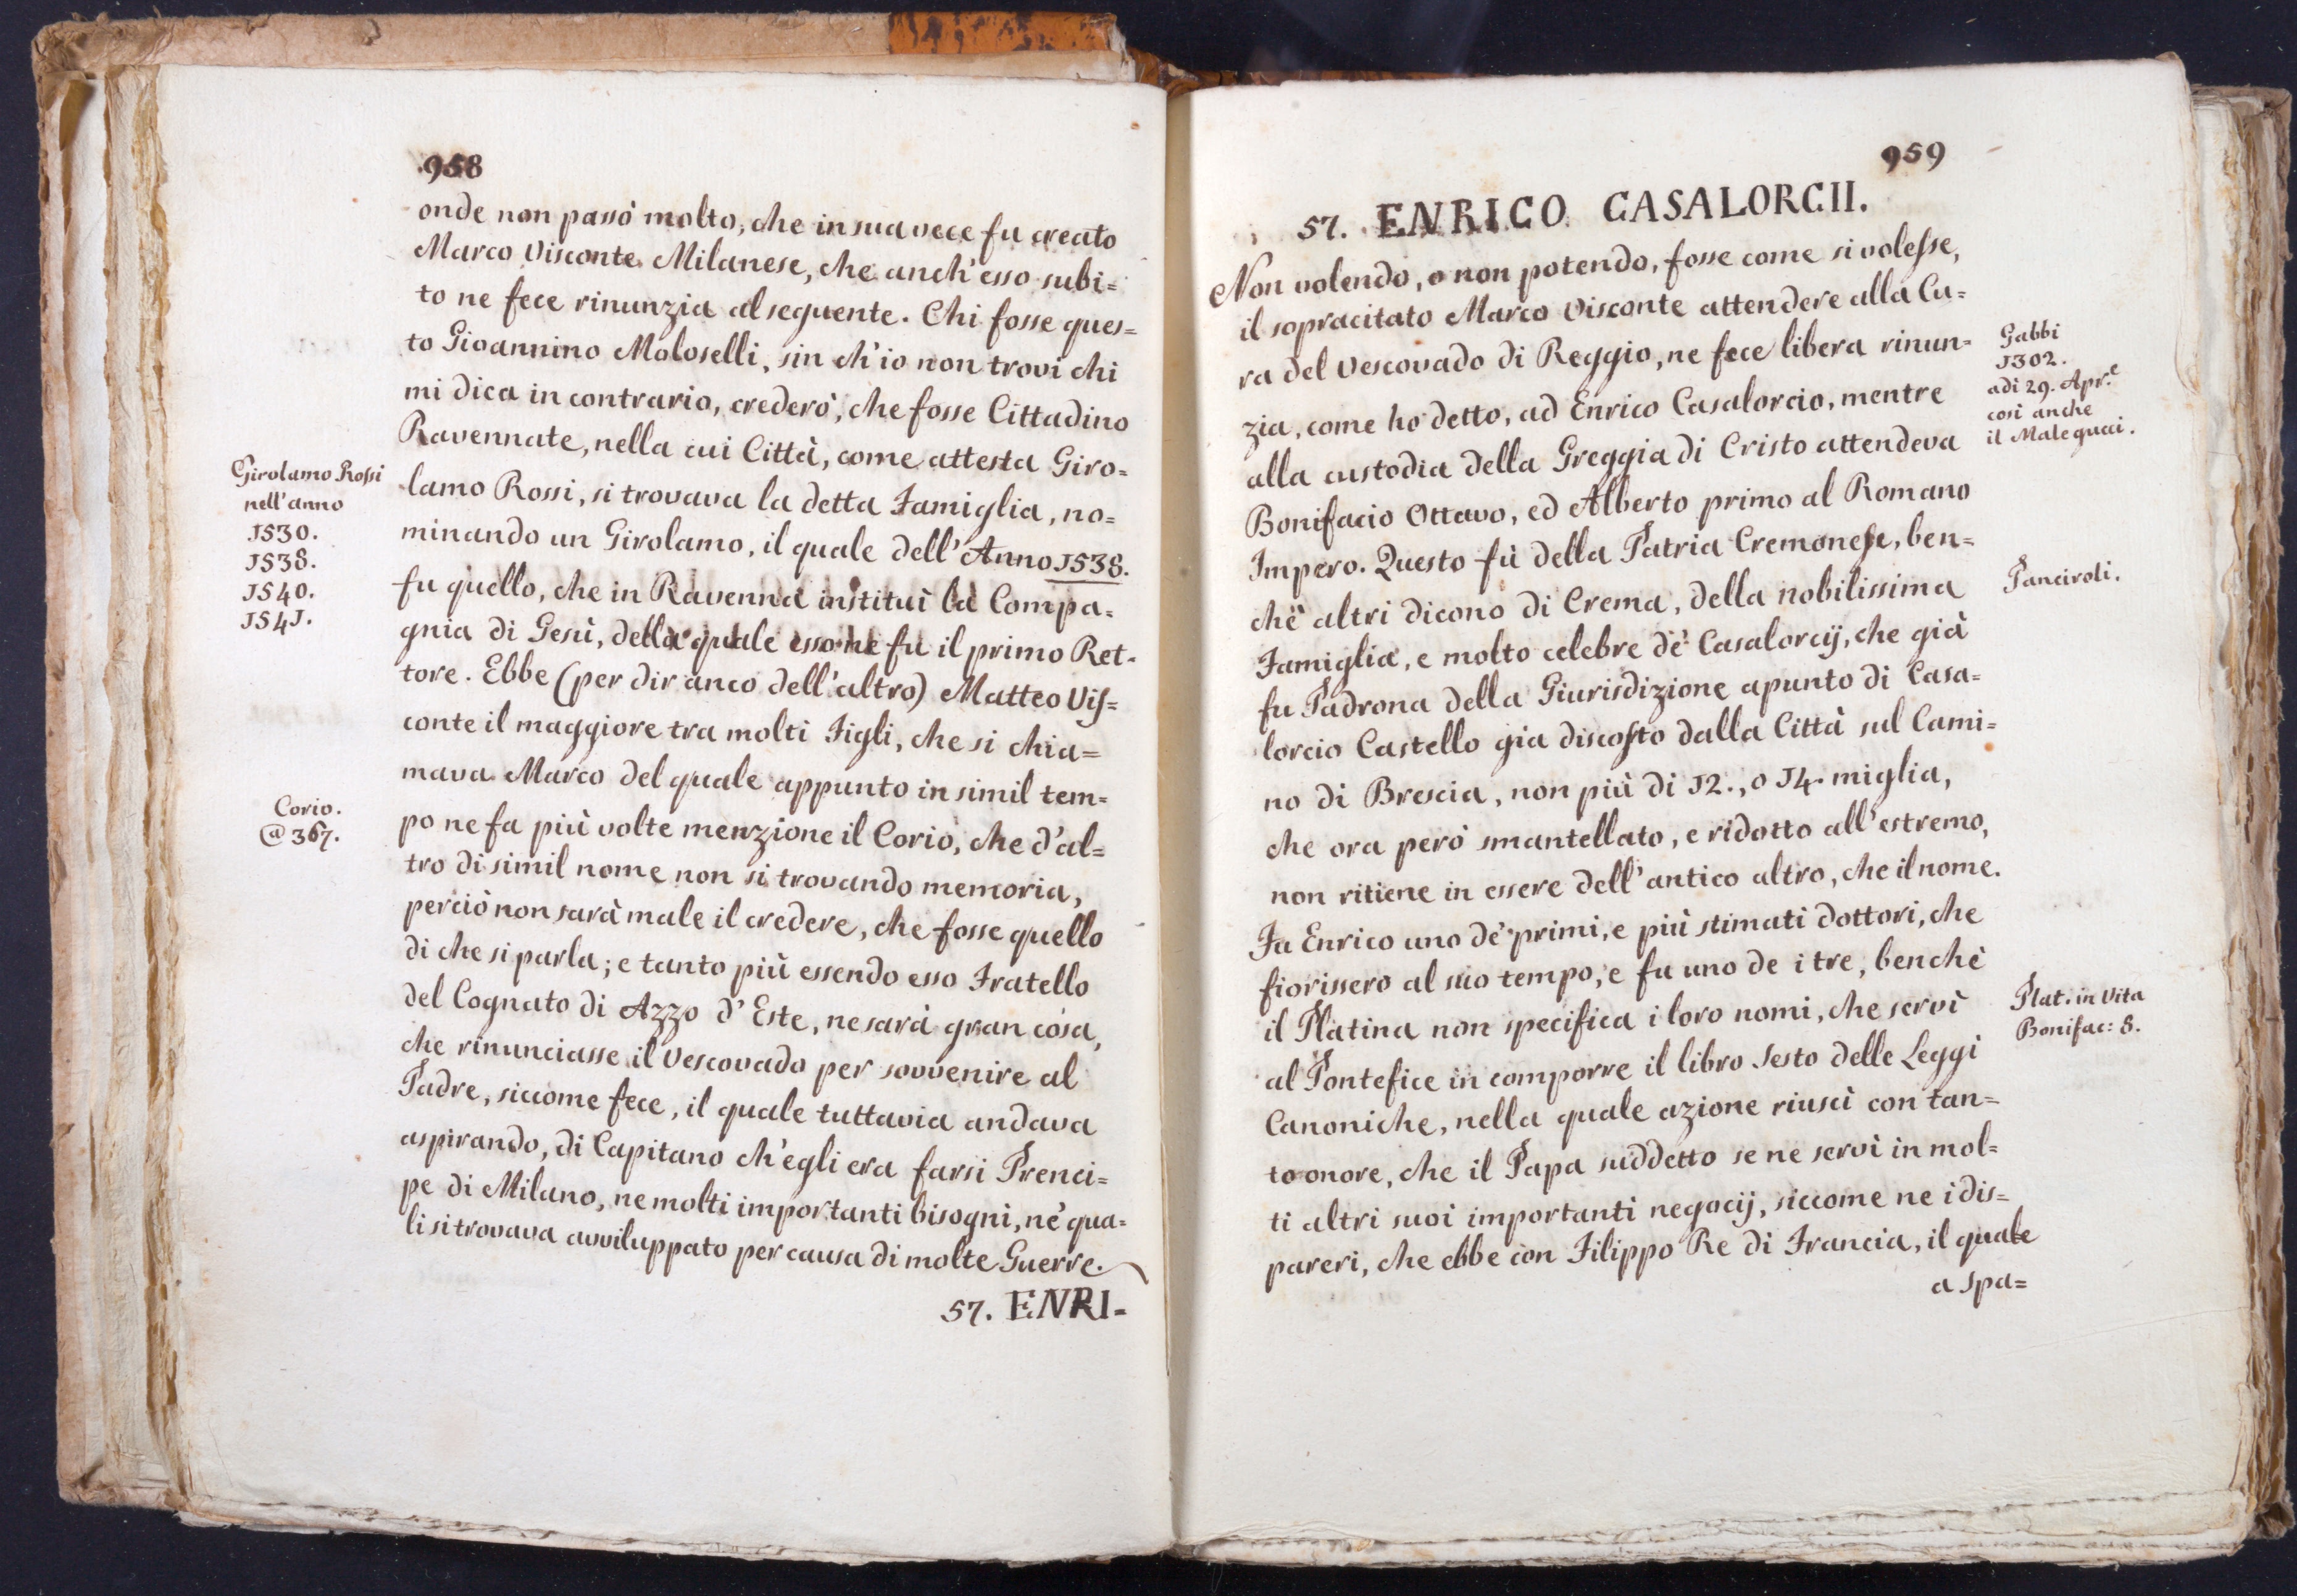 958
onde non passò molto, che in sua vece fu creato
Marco Visconte Milanese, che anch'esso subi=
to ne fece rinunzia al seguente. Chi fosse ques=
to Gioannino Moloselli, sin ch'io non trovi chi
mi dica in contrario, crederò, che fosse Cittadino
Ravennate, nella cui Città, come attesta Giro=
lamo Rossi, si trovava la detta Famiglia, no=
minando un Girolamo, il quale dell'Anno 1538.
fu quello, che in Ravenna instituì la Compa=
gnia di Gesù, della quale esso ne fu il primo Ret=
tore. Ebbe (per dir anco dell'altro) Matteo Vis=
conte il maggiore tra molti Figli, che si chia=
mava Marco del quale appunto in simil tem=
po ne fa più volte menzione il Corio, che d'al=
tro di simil nome non si trovando memoria,
perciò non sarà male il credere, che fosse quello
di che si parla; e tanto più essendo esso Fratello
del Cognato di Azzo d'Este, ne sarà gran cosa,
che rinunciasse il Vescovado per sovvenire al
Padre, siccome fece, il quale tuttavia andava
aspirando, di Capitano ch'egli era farsi Prenci=
pe di Milano, ne molti importanti bisogni, ne' qua=
li si trovava avviluppato per causa di molte Guerre.
57. ENRI=
Girolamo Rossi
nell'anno
1530.
1538.
1540.
1541.
Corio.
@ 367.
959
57. ENRICO CASALORCII.
Non volendo, o non potendo, fosse come si volesse,
il sopracitato Marco Visconte attendere alla Cu=
ra del Vescovado di Reggio, ne fece libera rinun=
zia, come ho detto, ad Enrico Casalorcio, mentre
alla custodia della Greggia di Cristo attendeva
Bonifacio Ottavo, ed Alberto primo al Romano
Impero. Questo fù della Patria Cremonese, ben=
chè altri dicono di Crema, della nobilissima
Famiglia, e molto celebre de' Casalorcij, che già
fu Padrona della Giurisdizione apunto di Casa=
lorcio Castello gia discosto dalla Città sul Cami=
no di Brescia, non più di 12., o 14. miglia,
che ora però smantellato, e ridotto all'estremo,
non ritiene in essere dell'antico altro, che il nome.
Fu Enrico uno de' primi, e più stimati dottori, che
fiorissero al suo tempo, e fu uno de i tre, benchè
il Platina non specifica i loro nomi, che servì
al Pontefice in comporre il libro Sesto delle Leggi
Canoniche, nella quale azione riuscì con tan=
to onore, che il Papa suddetto se ne servì in mol=
ti altri suoi importanti negocij, siccome ne i dis=
pareri, che ebbe con Filippo Re di Francia, il quale
a spa=
Gabbi
1302.
adì 29. Apr.e
così anche
il Malequai.
Panciroli.
Plat. in Vita
Bonifac: 8.